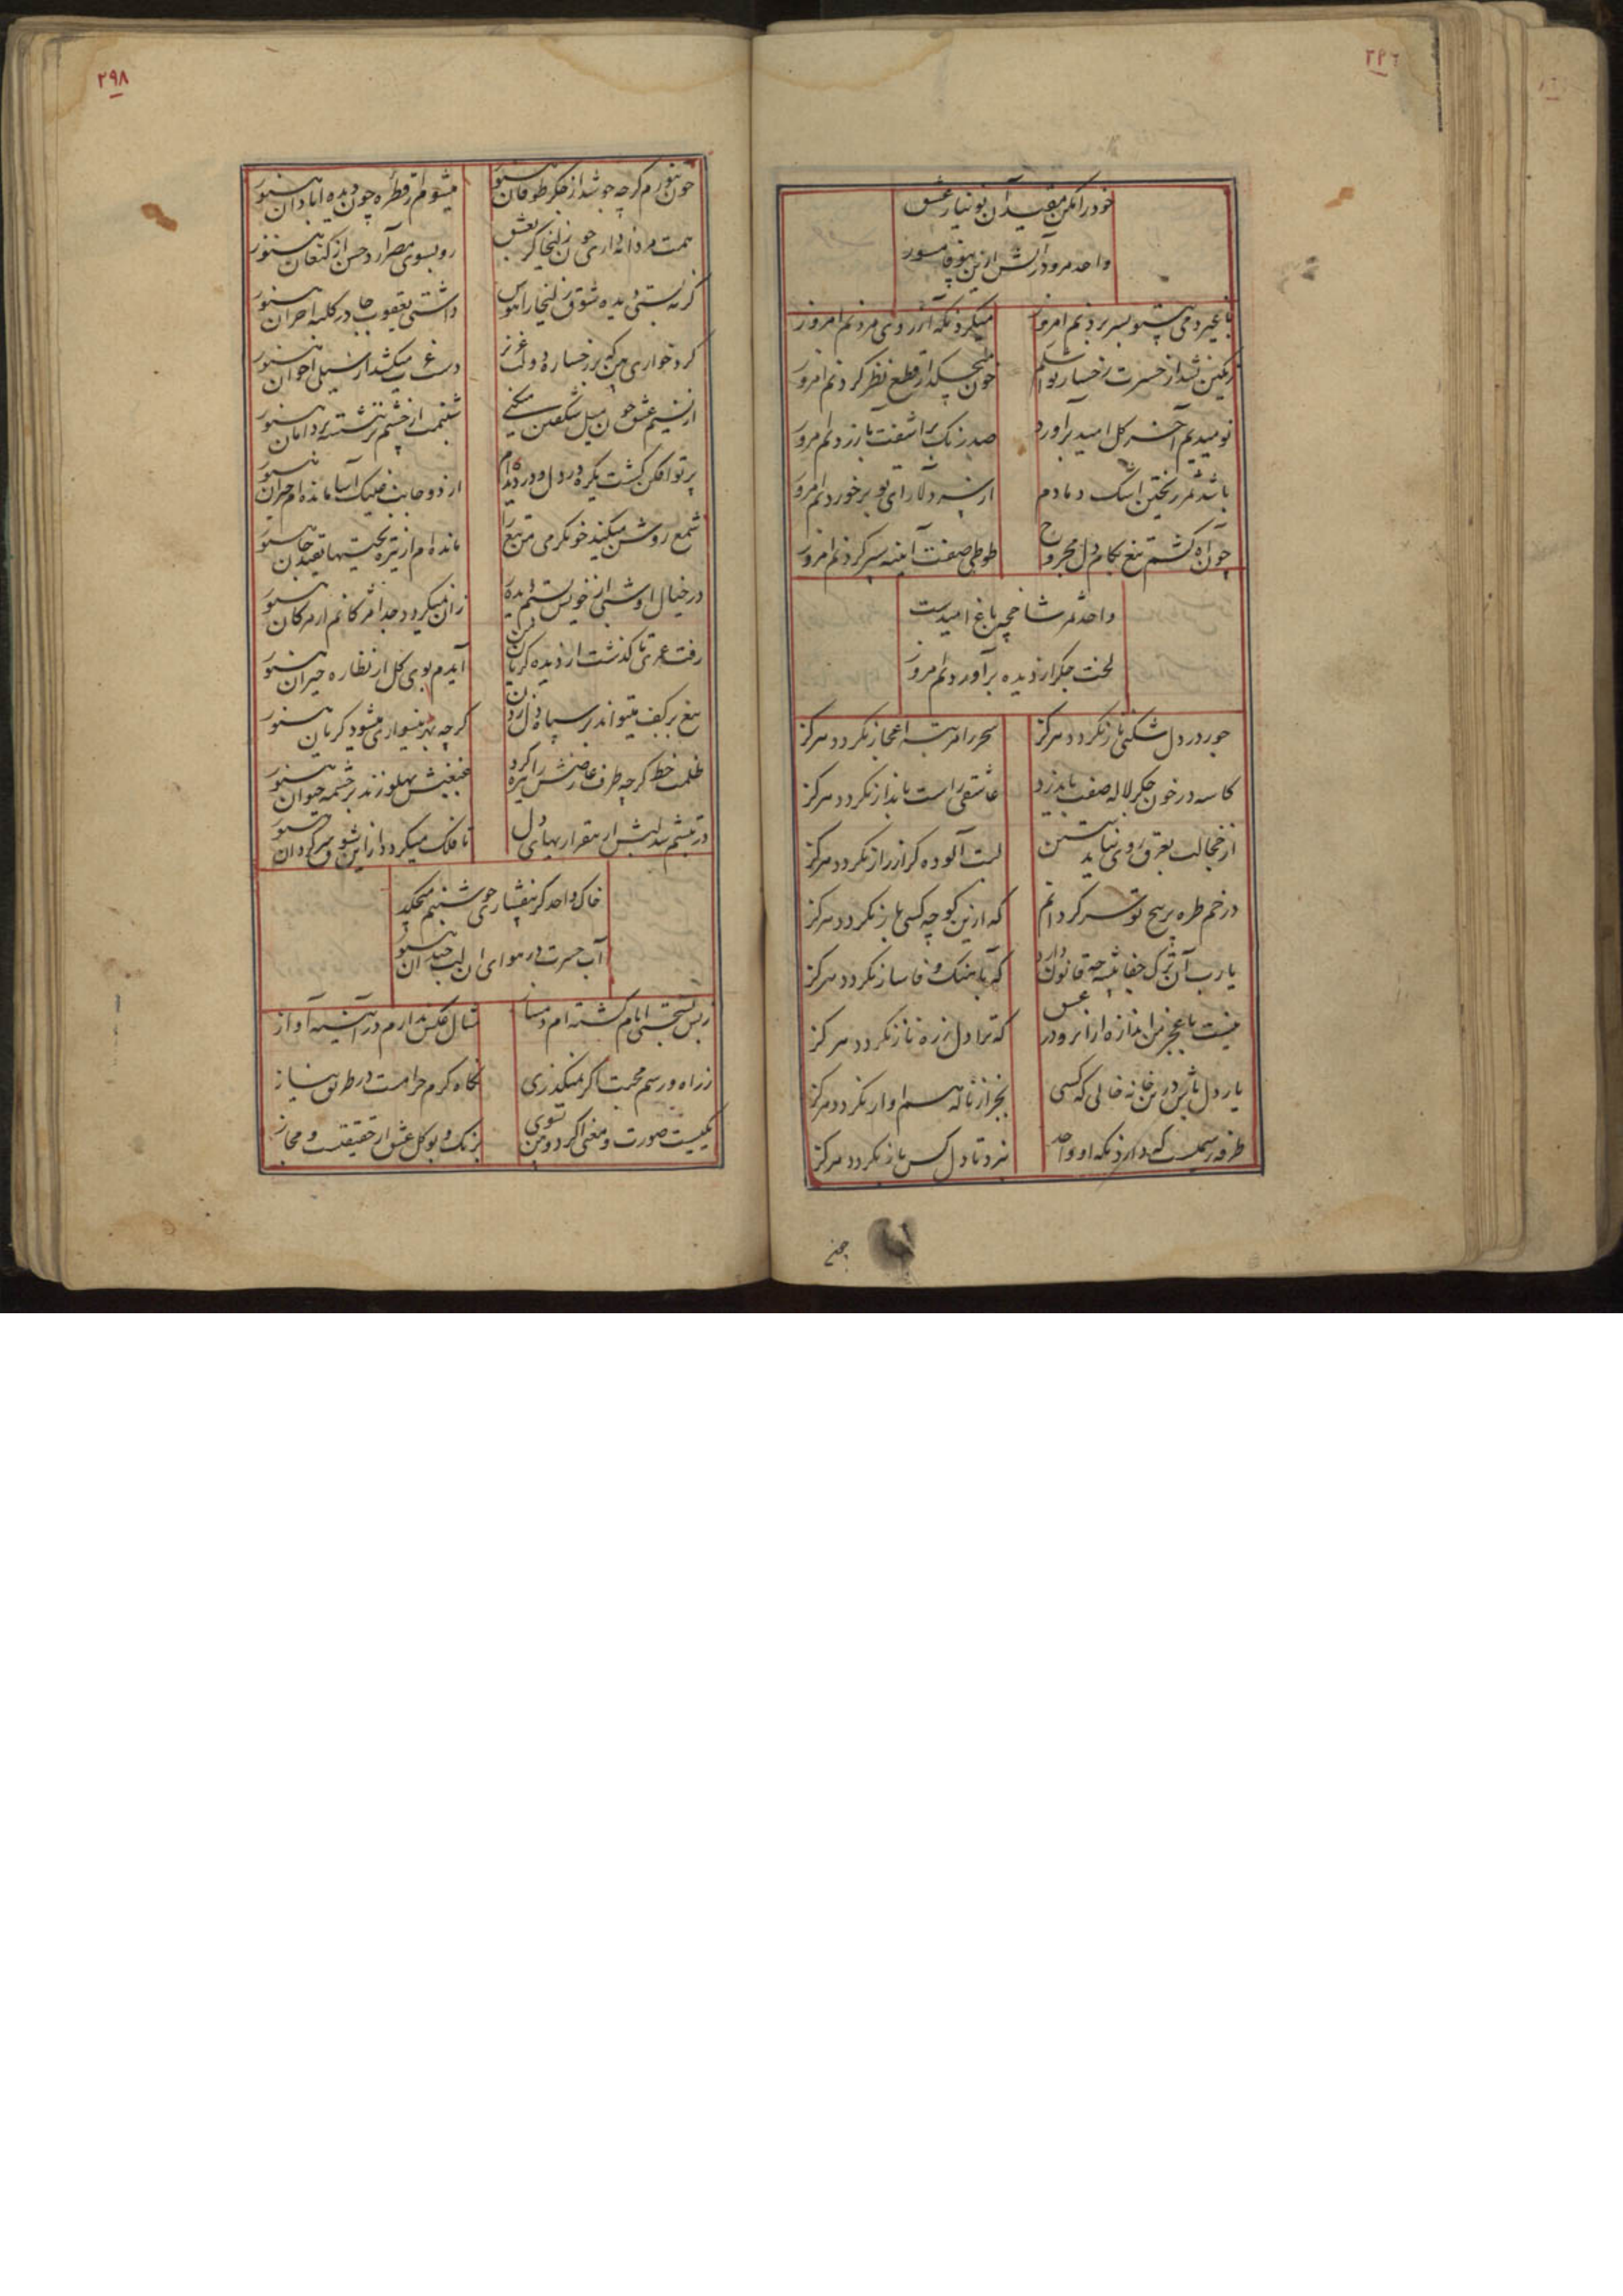 ٢٩٦
خود را مکن مقید آن بو نیاز عشق
واحد مرو در آتش ازین سوز
با غیر دمی بی تو بسر بردنم امروز
میکرد نکه آرزوی مردنم امروز
رنکین نشد از حسرت رخسار تو اشکم
خون میچکد از قطع نظر کردنم امروز
نومیدیم آخر کل امید برآورد
صد رنک برآشفت بازردنم امروز
باشد ثمر ریختن اشک دمادم
از سرو دلارای تو برخوردنم امروز
چون آه کشم تیغ بکام دل مجروح
طوطی صفت آینه سپر کردنم امروز
واحد ثمر شاخچه باغ امیدست
لخت جکر از دیده برآوردنم امروز
جور در دل شکنی باز نکردد هرکز
سحر را مرتبه اعجاز نکردد هرکز
کاسه در خون جکر لاله صفت باید زد
عاشقی راست بانداز نکردد هرکز
از خجالت بعرق روی نیاید شستن
لبت آلوده کر از راز نکردد هرکز
در خم طره پر پیچ تو سر کردانم
که ازین کوچه کسی باز نکردد هرکز
یارب آن ترک جفا پیشه چه قانون دارد
که بآهنک وفا ساز نکردد هرکز
نیست با عجز من اندازه از انرو در عشق
که ترا دل ز ره ناز نکردد هرکز
یار دل باش درین خانه خالی که کسی
بجز از ناله هم آواز نکردد هرکز
طرفه رسمیست که دارد نکه او واحد
نبرد تا دل کس باز نکردد هرکز
چنی
٢٩٨
خون نخورم کرچه جوشد از جکر طوفان هنوز
میشوم از قطره چون دیده آبادان هنوز
همت مردانه داری چون زلیخا کر بعشق
رو بسوی مصر آرد حسن از کنعان هنوز
کر نه بستی دیده شوق زلیخا را هوس
داشتی یعقوب جا در کلبه احزان هنوز
کرد خواری بین که بر رخساره دولت عزیز
یوسف میکشد از سیلی اخوان هنوز
از نسیم عشق چون میل شکفتن میکنی
شبنمت از چشم تر ننشسته بر دامان هنوز
پرتو افکن کشت یکره در دل و در دیده ام
از دو جانب آسا مانده ام حیران هنوز
شمع روشن میکند خونکرمی من تیغ را
مانده ام از تیره بختیها بقید جان هنوز
در خیال او شبی از خویش بستم دیده را
زان نمیکردد جدا مژکانم از مژکان هنوز
رفت عمری تا کذشت از دیده کریان من
آیدم بوی کل از نظاره حیران هنوز
تیغ بر کف میتواند بر سپاه دل زدن
کرچه بهر نیسواری میشود کریان هنوز
ظلمت خط کرچه طرف عارضش را تیره کرد
غبغبش پهلو زند بر چشمه حیوان هنوز
در تبشم از بیقراریهای دل
تا فلک میکردد از این شوق سرکردان هنوز
خاک واحد کر بیفشاری چو شبنم میچکد
آب حسرت در هوای آن لب خندان هنوز
ز بس بسختی ایام کشته ام دمساز
مثال عکس ندارم در آینه آواز
ز راه و رسم محبت اکر نمیکذری
نکاه کرم حرامست در طریق نیاز
یکیست صورت و معنی اکر دو بین نشوی
برنک و بو کل عشق از حقیقتست و مجاز